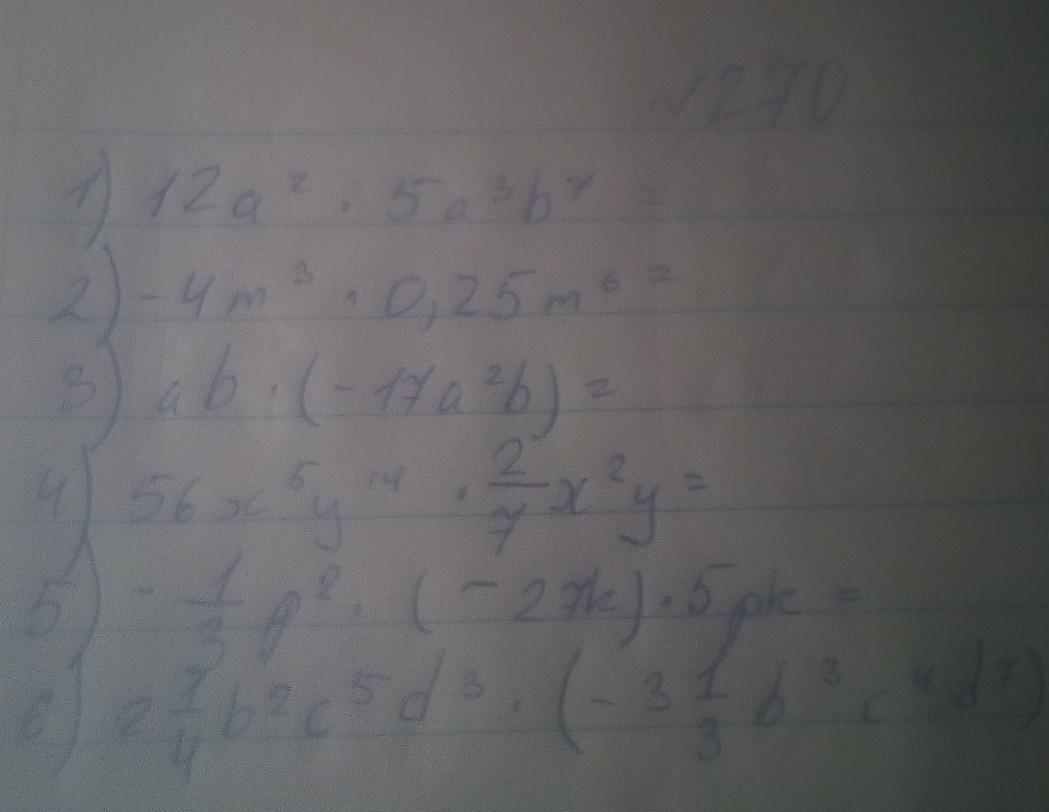 №270
1) 12a² · 5a³b⁷ =
2) -4m³ · 0,25m⁶ =
3) ab · (-17a²b) =
4) 56x⁵y¹⁴ · 2/7 x²y =
5) -1/3 p² · (-27k) · 5pk =
6) 2 1/4 b²c⁵d³ · (-3 1/3 b³c⁴d⁷)